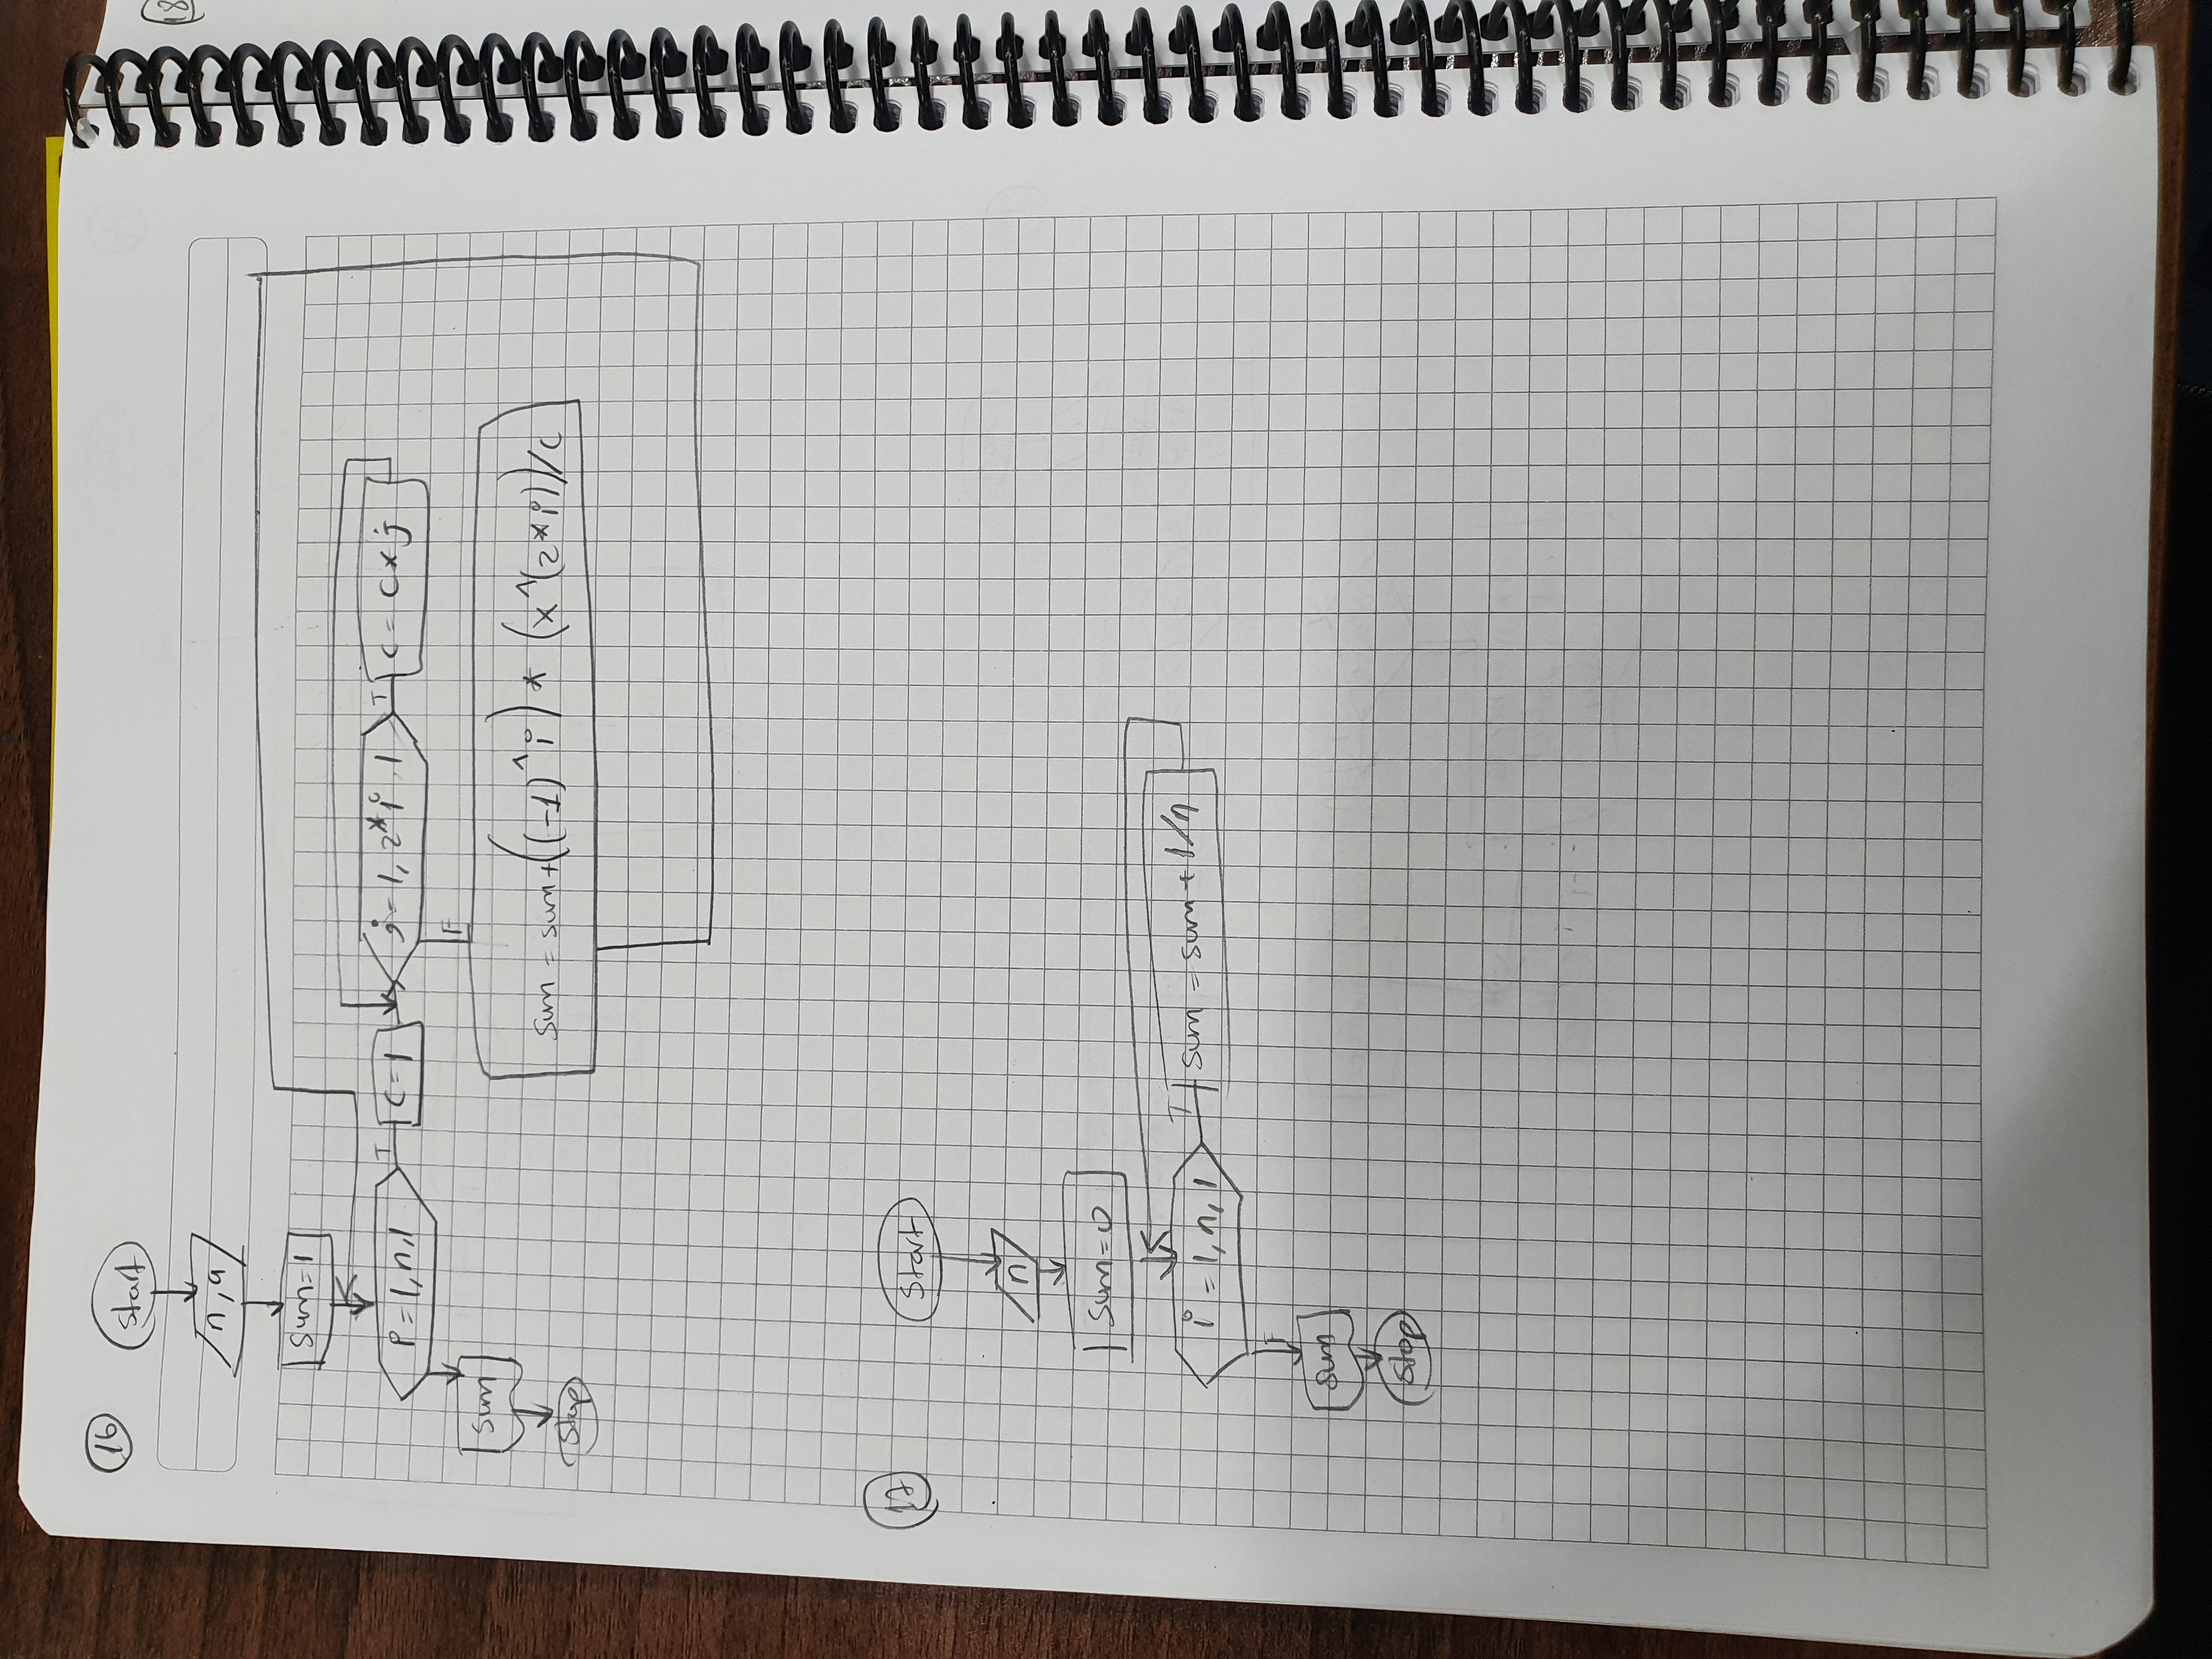 16
Start
n, a
sum=1
P = 1, n, 1
T
C=1
j = 1, 2*i, 1
T
C = C x j
F
sum
sum = sum + ((-1)^i) * (x^(2*i))/C
Stop
17
Start
n
sum=0
i = 1, n, 1
T
sum = sum + 1/n
F
sum
Stop
18